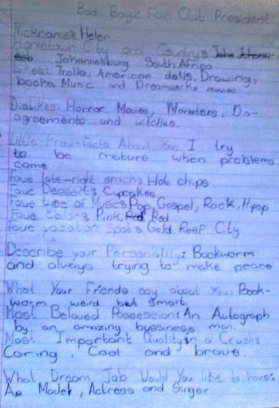 Bad Boyz Fan Club President
Nickname: Helen
Hometown City and Country:
Johannesburg South Africa
Likes: Trolls, American dolls, Drawing,
books, Music and Dreamworks movies
Dislikes: Horror Movies, Monsters, Dis-
agreements and witches.
Little Known Facts About You: I try
to be mature when problems
come.
Fave late-night snack: Hot chips
Fave Dessert: Cupcakes
Fave type of Music: Pop, Gospel, Rock, Hpop
Fave Colors: Pink, Red
Fave vacation Spot: Gold Reef City
Describe your Personality: Bookworm
and always trying to make peace
What Your Friends say about You: Book-
worm, weird but smart.
Most Beloved Possession: An Autograph
by an amazing bussiness man.
Most Important Quality in a Crush:
Caring, Cool and brave.
What Dream Job Would You like to have:
A Model, Actress and Singer